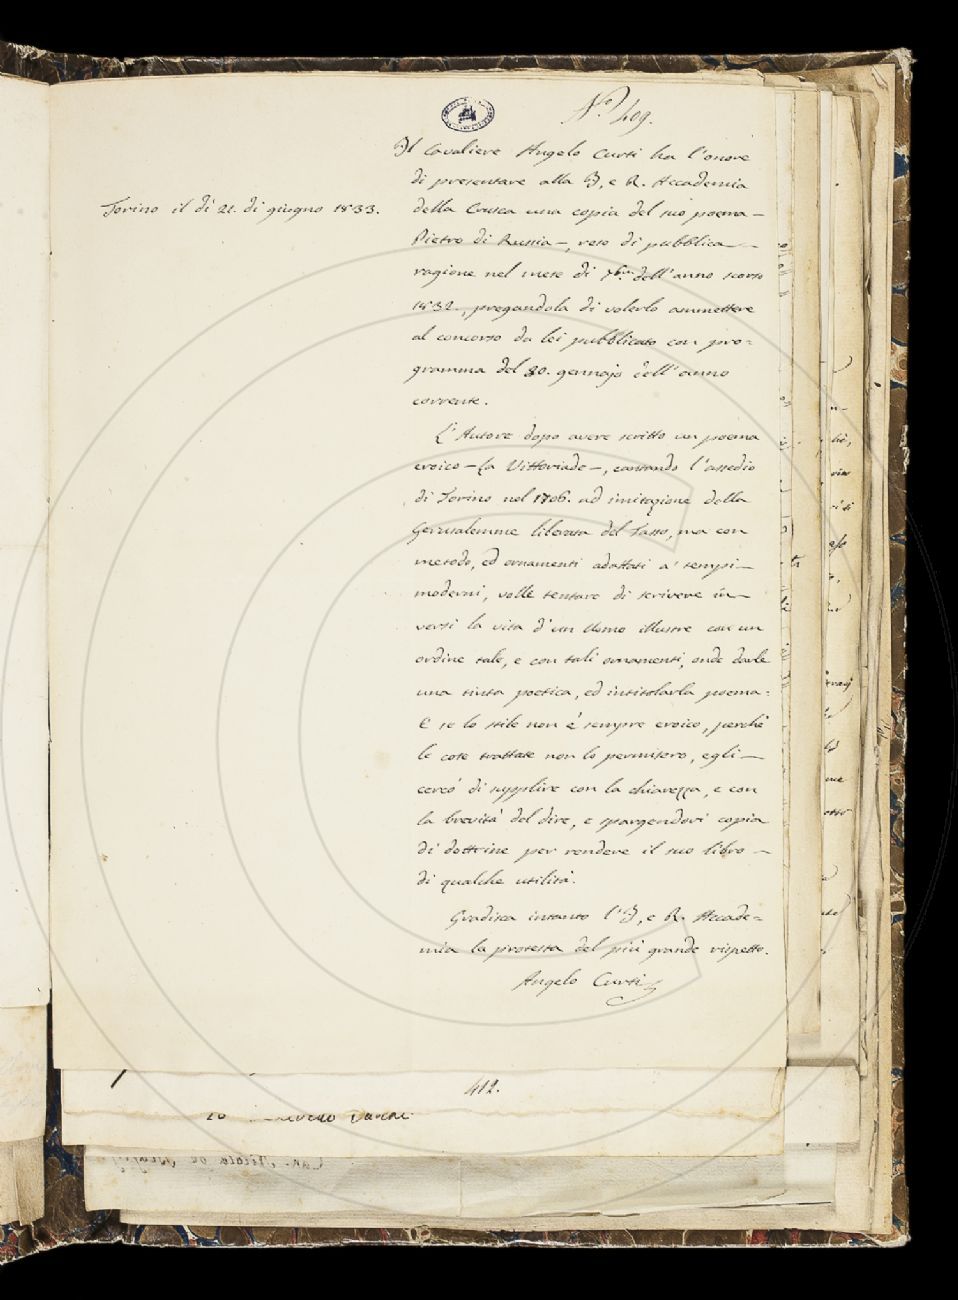 N.o 409.
Il Cavaliere Angelo Curti ha l'onore
di presentare alla I, e R. Accademia
Torino il dì 21. di giugno 1833.
della Crusca una copia del suo poema —
Pietro di Russia —, reso di pubblica —
ragione nel mese di 7bre dell'anno scorso
1832., pregandola di volerlo ammettere
al concorso da lei pubblicato con pro=
gramma del 30. gennajo dell'anno
corrente.
L'Autore dopo avere scritto un poema
eroico — La Vittoriade —, cantando l'assedio
di Torino nel 1706. ad imitazione della
Gerusalemme liberata del Tasso, ma con
metodo, ed ornamenti adattati a' tempi —
moderni, volle tentare di scrivere in —
versi la vita d'un Uomo illustre con un
ordine tale, e con tali ornamenti, onde darle
una tinta poetica, ed intitolarla poema.
E se lo stile non è sempre eroico, perchè
le cose trattate non lo permisero, egli —
cercò di supplire con la chiarezza, e con
la brevità del dire, e spargendovi copia
di dottrine per rendere il suo libro —
di qualche utilità.
Gradisca intanto l'I, e R. Accade=
mia la protesta del più grande rispetto.
Angelo Curti
412.